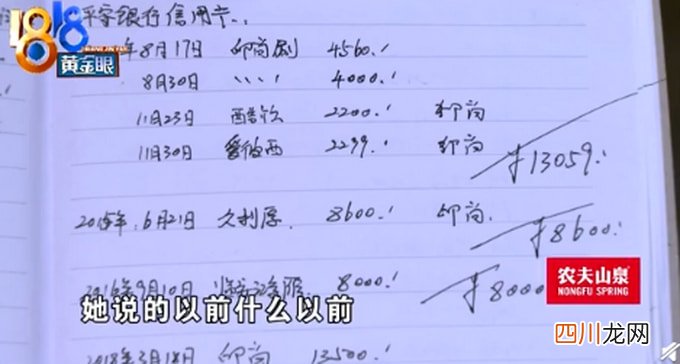 1818
黄金眼
平安银行信用卡..
年8月17日 印尚刷 4560.
8月30日 、、、、 4000.
11月23日 醋饮 2200. 印尚
11月30日 爱伯西 2299. 印尚
¥13059.
2015年.6月21日 久利厚. 8600. 印尚.
¥8600.
2016年9月10日 8000.
¥8000
农夫山泉
NONGFU SPRING
她说的以前什么以前
四川龙网
2018年3月18日 印尚 13500.